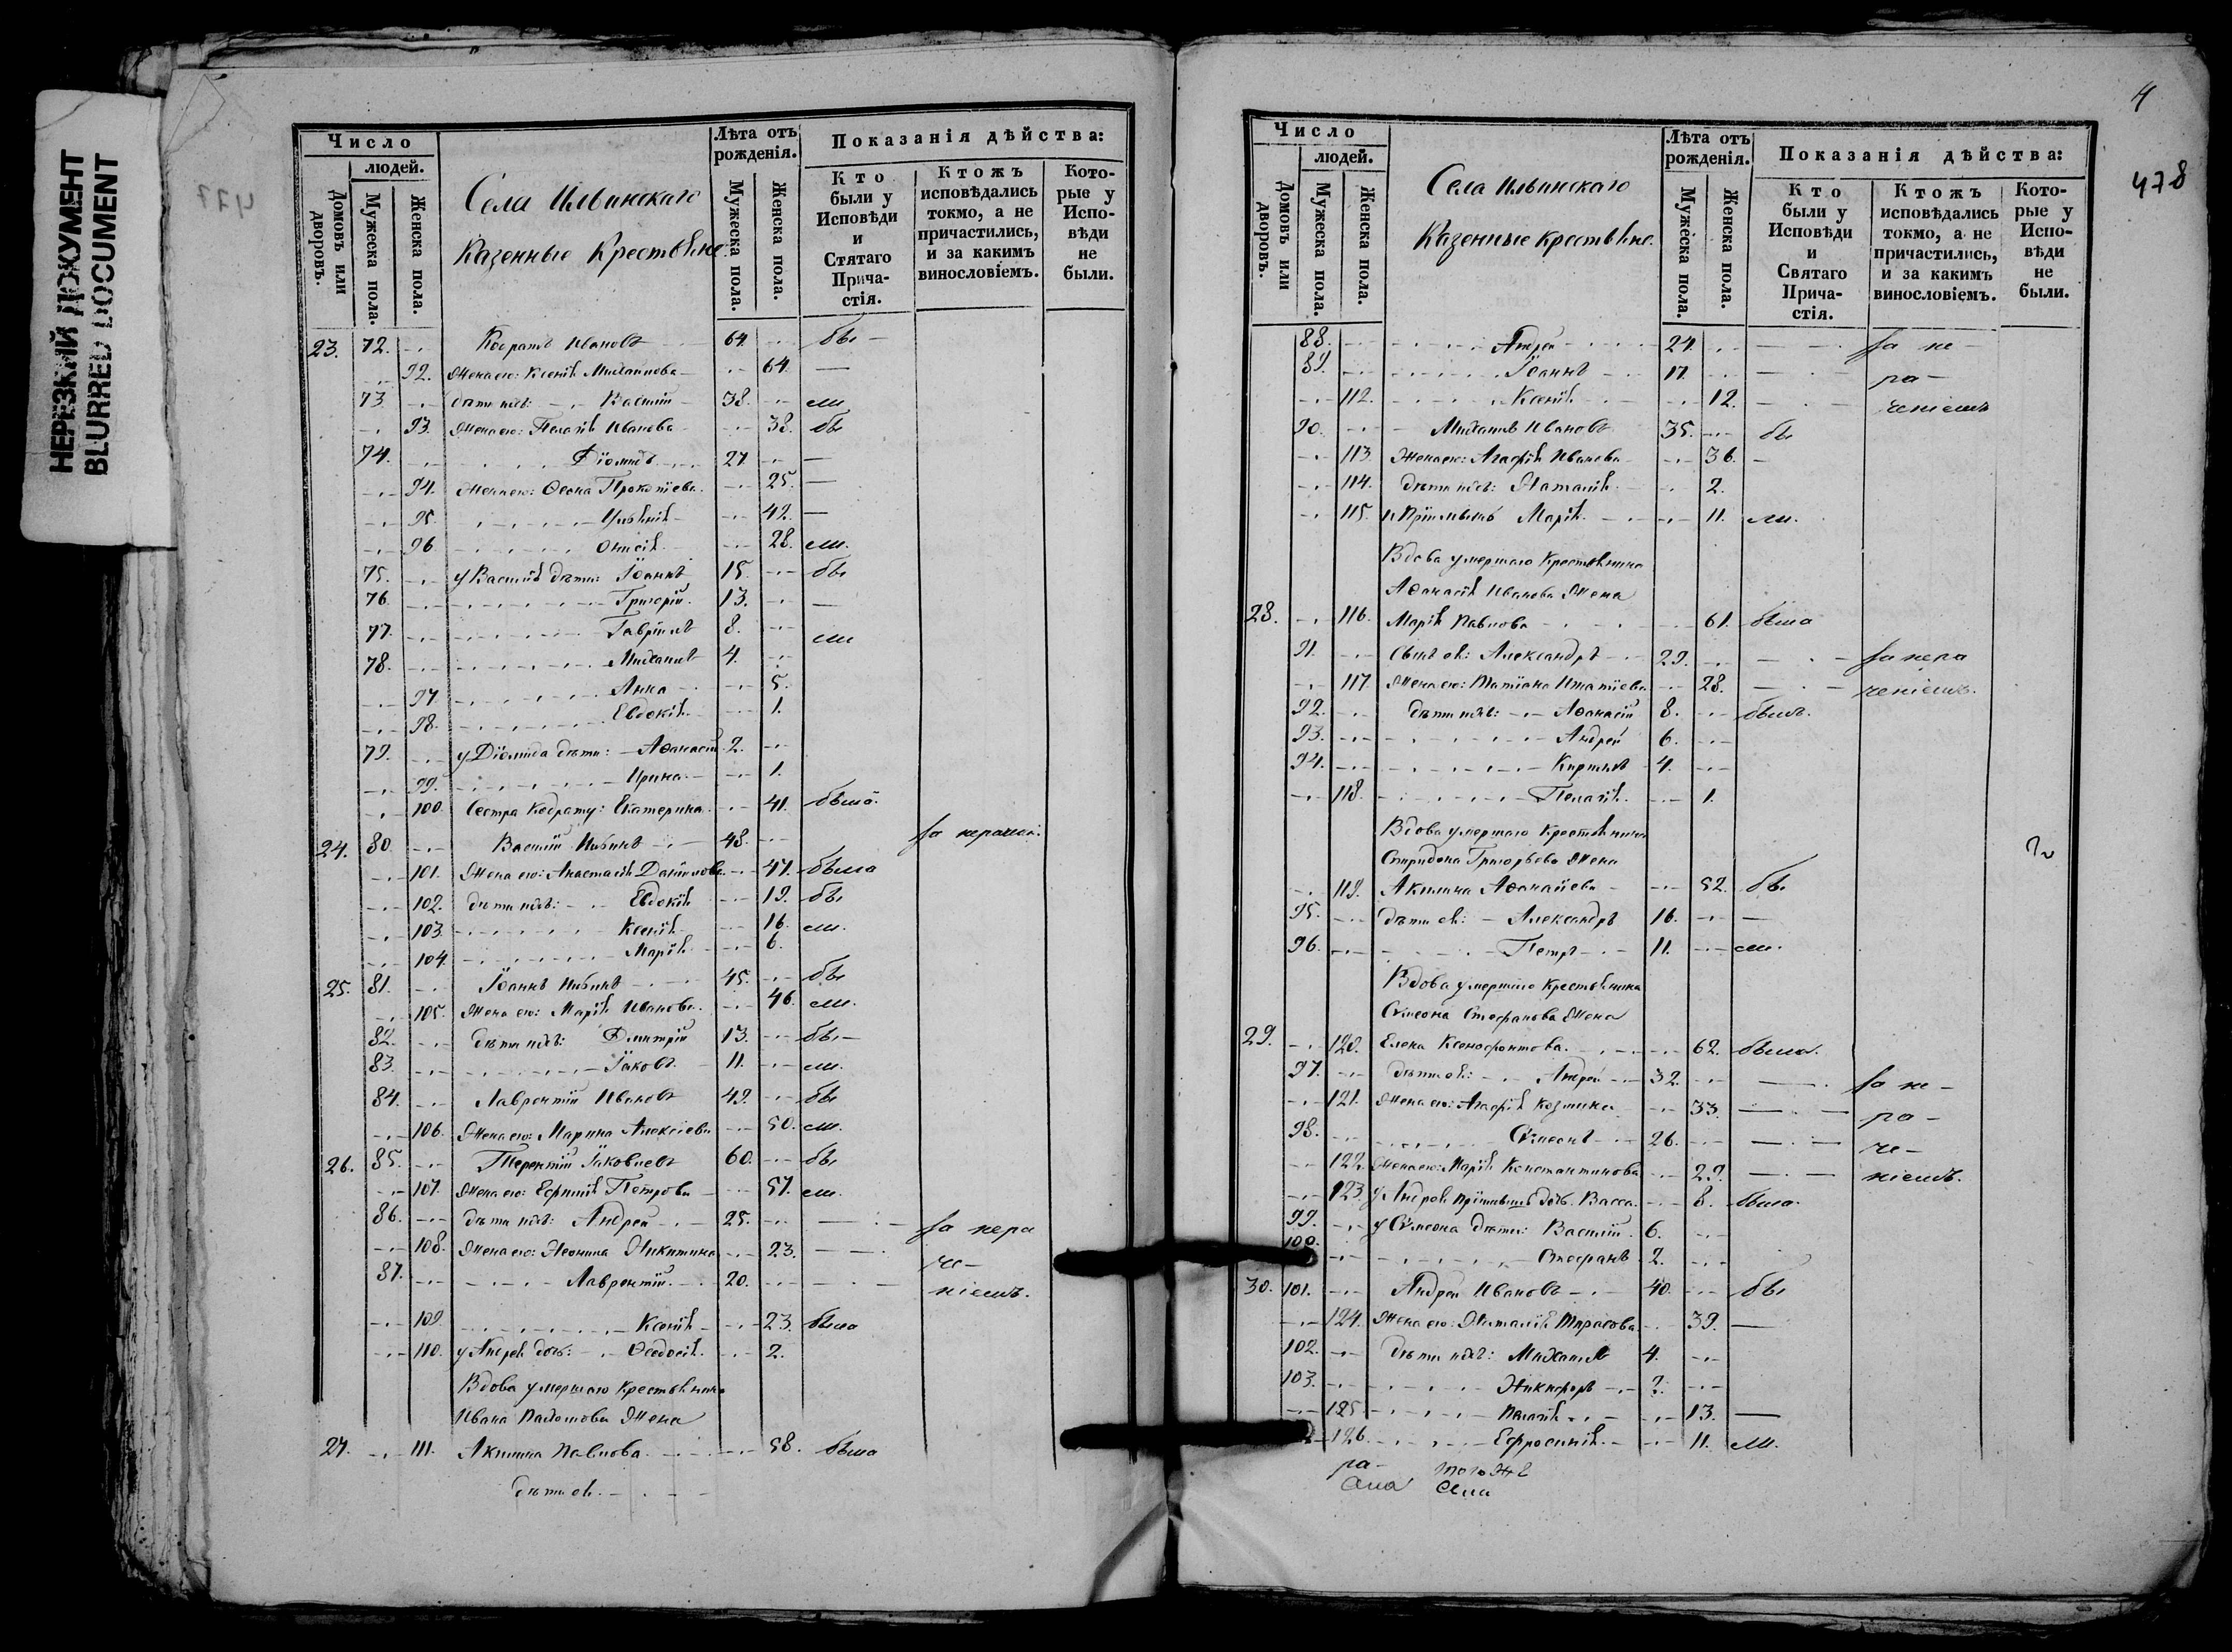 НЕРЕЗКИЙ ДОКУМЕНТ
BLURRED DOCUMENT
Число
людей.
Домовъ или дворовъ.
Мужеска пола.
Женска пола.
Села Ильинскаго
Казенные Крестьяне.
Лѣта отъ рожденія.
Мужеска пола.
Женска пола.
Показанія дѣйства:
Кто были у Исповѣди и Стятаго Прича-стія.
Ктожъ исповѣдались токмо, а не причастились, и за какимъ винословіемъ.
Кото-рые у Испо-вѣди не были.
23. 72. Кодратъ Ивановъ 64. бы-
92. Жена ею: Ксенія Михайлова 64. —
73. дѣти ихъ: Василій 38. ли
93. Жена ею: Пелагія Иванова 38. бы
74. Діомидъ 27. —
94. Жена ею: Прокопіева 25. —
95. 42. —
96. 28. ли.
75. у Василія дѣти: Іоаннъ 15. бы
76. Григорій 13. —
77. Гавріилъ 8. ли
78. Михаилъ 4.
97. Анна 5.
98. Евдокія 1.
79. у Діомида дѣти: Аѳанасій 2.
99. Ирина 1.
100. Сестра Кодрату: Екатерина 41. была.
24. 80. Василій 48. за нерачен.
101. Жена ею: Анастасія Даніилова 47. была
102. дѣти ихъ: Евдокія 19. бы
103. Ксенія 16. ли.
104. Марія 6.
25. 81. Іоаннъ 45. бы
105. Жена ею: Марія Иванова 46. ли.
82. дѣти ихъ: Димитрій 13. бы-
83. Іаковъ 11. ли.
84. Лаврентій Ивановъ 49. бы
106. Жена ею: Марина Алексіева 50. ли.
26. 85. Терентій Іаковлевъ 60. бы
107. Жена ею: Петрова 57. ли.
86. дѣти ихъ: Андрей 25. за нера
108. Жена ею: Никитина 23. че-
87. Лаврентій 20. ніемъ.
109. Ксенія 23. была
110. у Андрея дочь: Ѳеодосія 2.
Вдова умершаго Крестьянина
Ивана Жена
27. 111. Акилина Павлова 58. была
дѣти ея.
4
478
Число
людей.
Домовъ или дворовъ.
Мужеска пола.
Женска пола.
Села Ильинскаго
Казенные Крестьяне.
Лѣта отъ рожденія.
Мужеска пола.
Женска пола.
Показанія дѣйства:
Кто были у Исповѣди и Святаго Прича-стія.
Ктожъ исповѣдались токмо, а не причастились, и за какимъ винословіемъ.
Кото-рые у Испо-вѣди не были.
88. Андрей 24. за не-
89. Іоаннъ 17. ра-
112. Ксенія 12. ченіемъ
90. Михаилъ Ивановъ 35. бы
113. Жена ею: Агафія Иванова 36. —
114. дѣти ихъ: Наталія 2.
115. и Пріимышъ Марія 11. ли.
Вдова умершаго Крестьянина
Аѳанасія Иванова Жена
28. 116. Марія Павлова 61. была
91. Сынъ ея: Александръ 29. за нера
117. Жена ею: Татіана Игнатіева 28. ченіемъ.
92. дѣти ихъ: Аѳанасій 8. былъ.
93. Андрей 6.
94. Кириллъ 4.
118. Пелагія 1.
Вдова умершаго Крестьянина
Спиридона Григорьева Жена
119. Акилина Аѳанасіева 52. бы
95. дѣти ея: Александръ 16. —
96. Петръ 11. ли.
Вдова умершаго Крестьянина
Сѵмеона Стефанова Жена
29. 120. Елена Ксенофонтова 62. была.
97. дѣти ея: Андрей 32. за не-
121. Жена ею: Агафія Козмина 33. ра-
98. Сѵмеонъ 26. че-
122. Жена ею: Марія Константинова 29. ніемъ.
123. у Андрея Пріимышъ Васса 8. была.
99. у Сѵмеона дѣти: Василій 6.
100. Стефанъ 2.
30. 101. Андрей Ивановъ 40. бы
124. Жена ею: Наталія Тарасова 39. —
102. дѣти ихъ: Михаилъ 4.
103. Никифоръ ?.
125. Пелагія 13. —
126. Ефросинія 11. ли.
Тогоже
Села